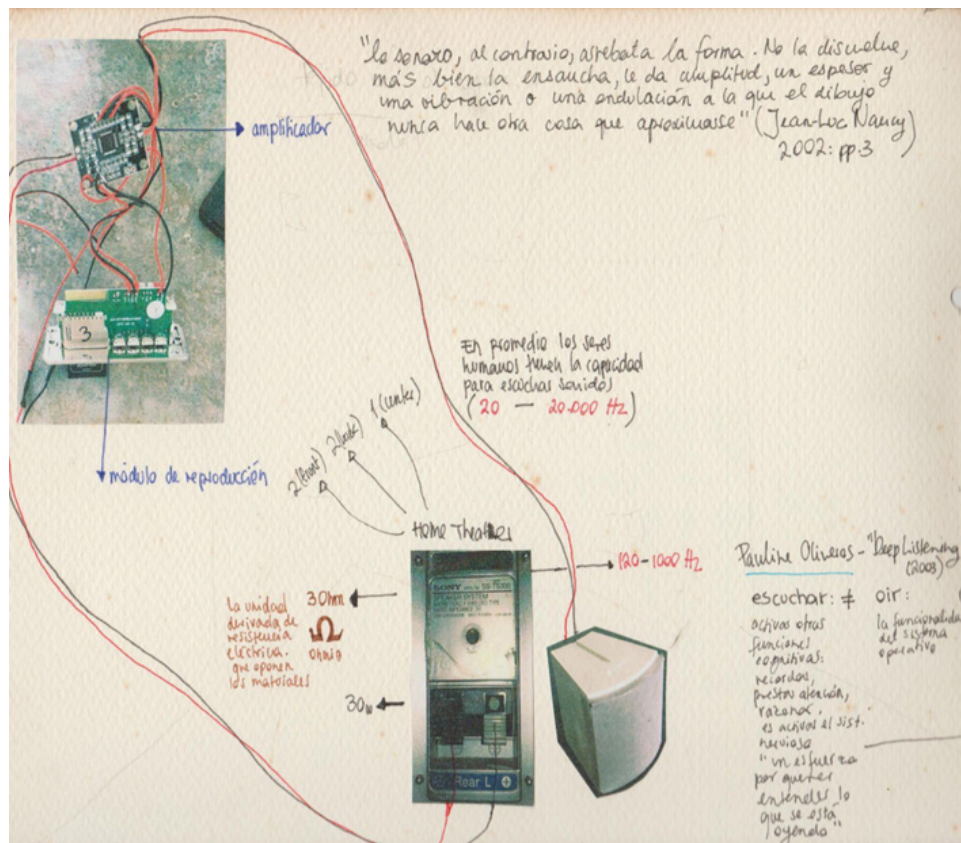 "lo sonoro, al contrario, arrebata la forma. No la disuelve,
más bien la ensancha, le da amplitud, un espesor y
una vibración o una ondulación a la que el dibujo
nunca hace otra cosa que aproximarse" (Jean-Luc Nancy)
2002: pp.3
amplificador
3
módulo de reproducción
En promedio los seres
humanos tienen la capacidad
para escuchar sonidos
(20 — 20.000 Hz)
2 (front)
2 (back)
1 (center)
Home Theather
120-1000 Hz
SONY
SPEAKER SYSTEM
3 Ohm
La unidad
derivada de
resistencia
eléctrica.
que oponen
los materiales
Ω
ohmio
30w
Rear L +
Pauline Oliveros - "Deep Listening
(2003)
escuchar: ≠ oir:
activar otras
funciones
cognitivas:
recordar,
prestar atención,
razonar.
es activar el sist.
nervioso
"un esfuerzo
por querer
entender lo
que se está
oyendo"
la funcionalida
del sistema
operativo